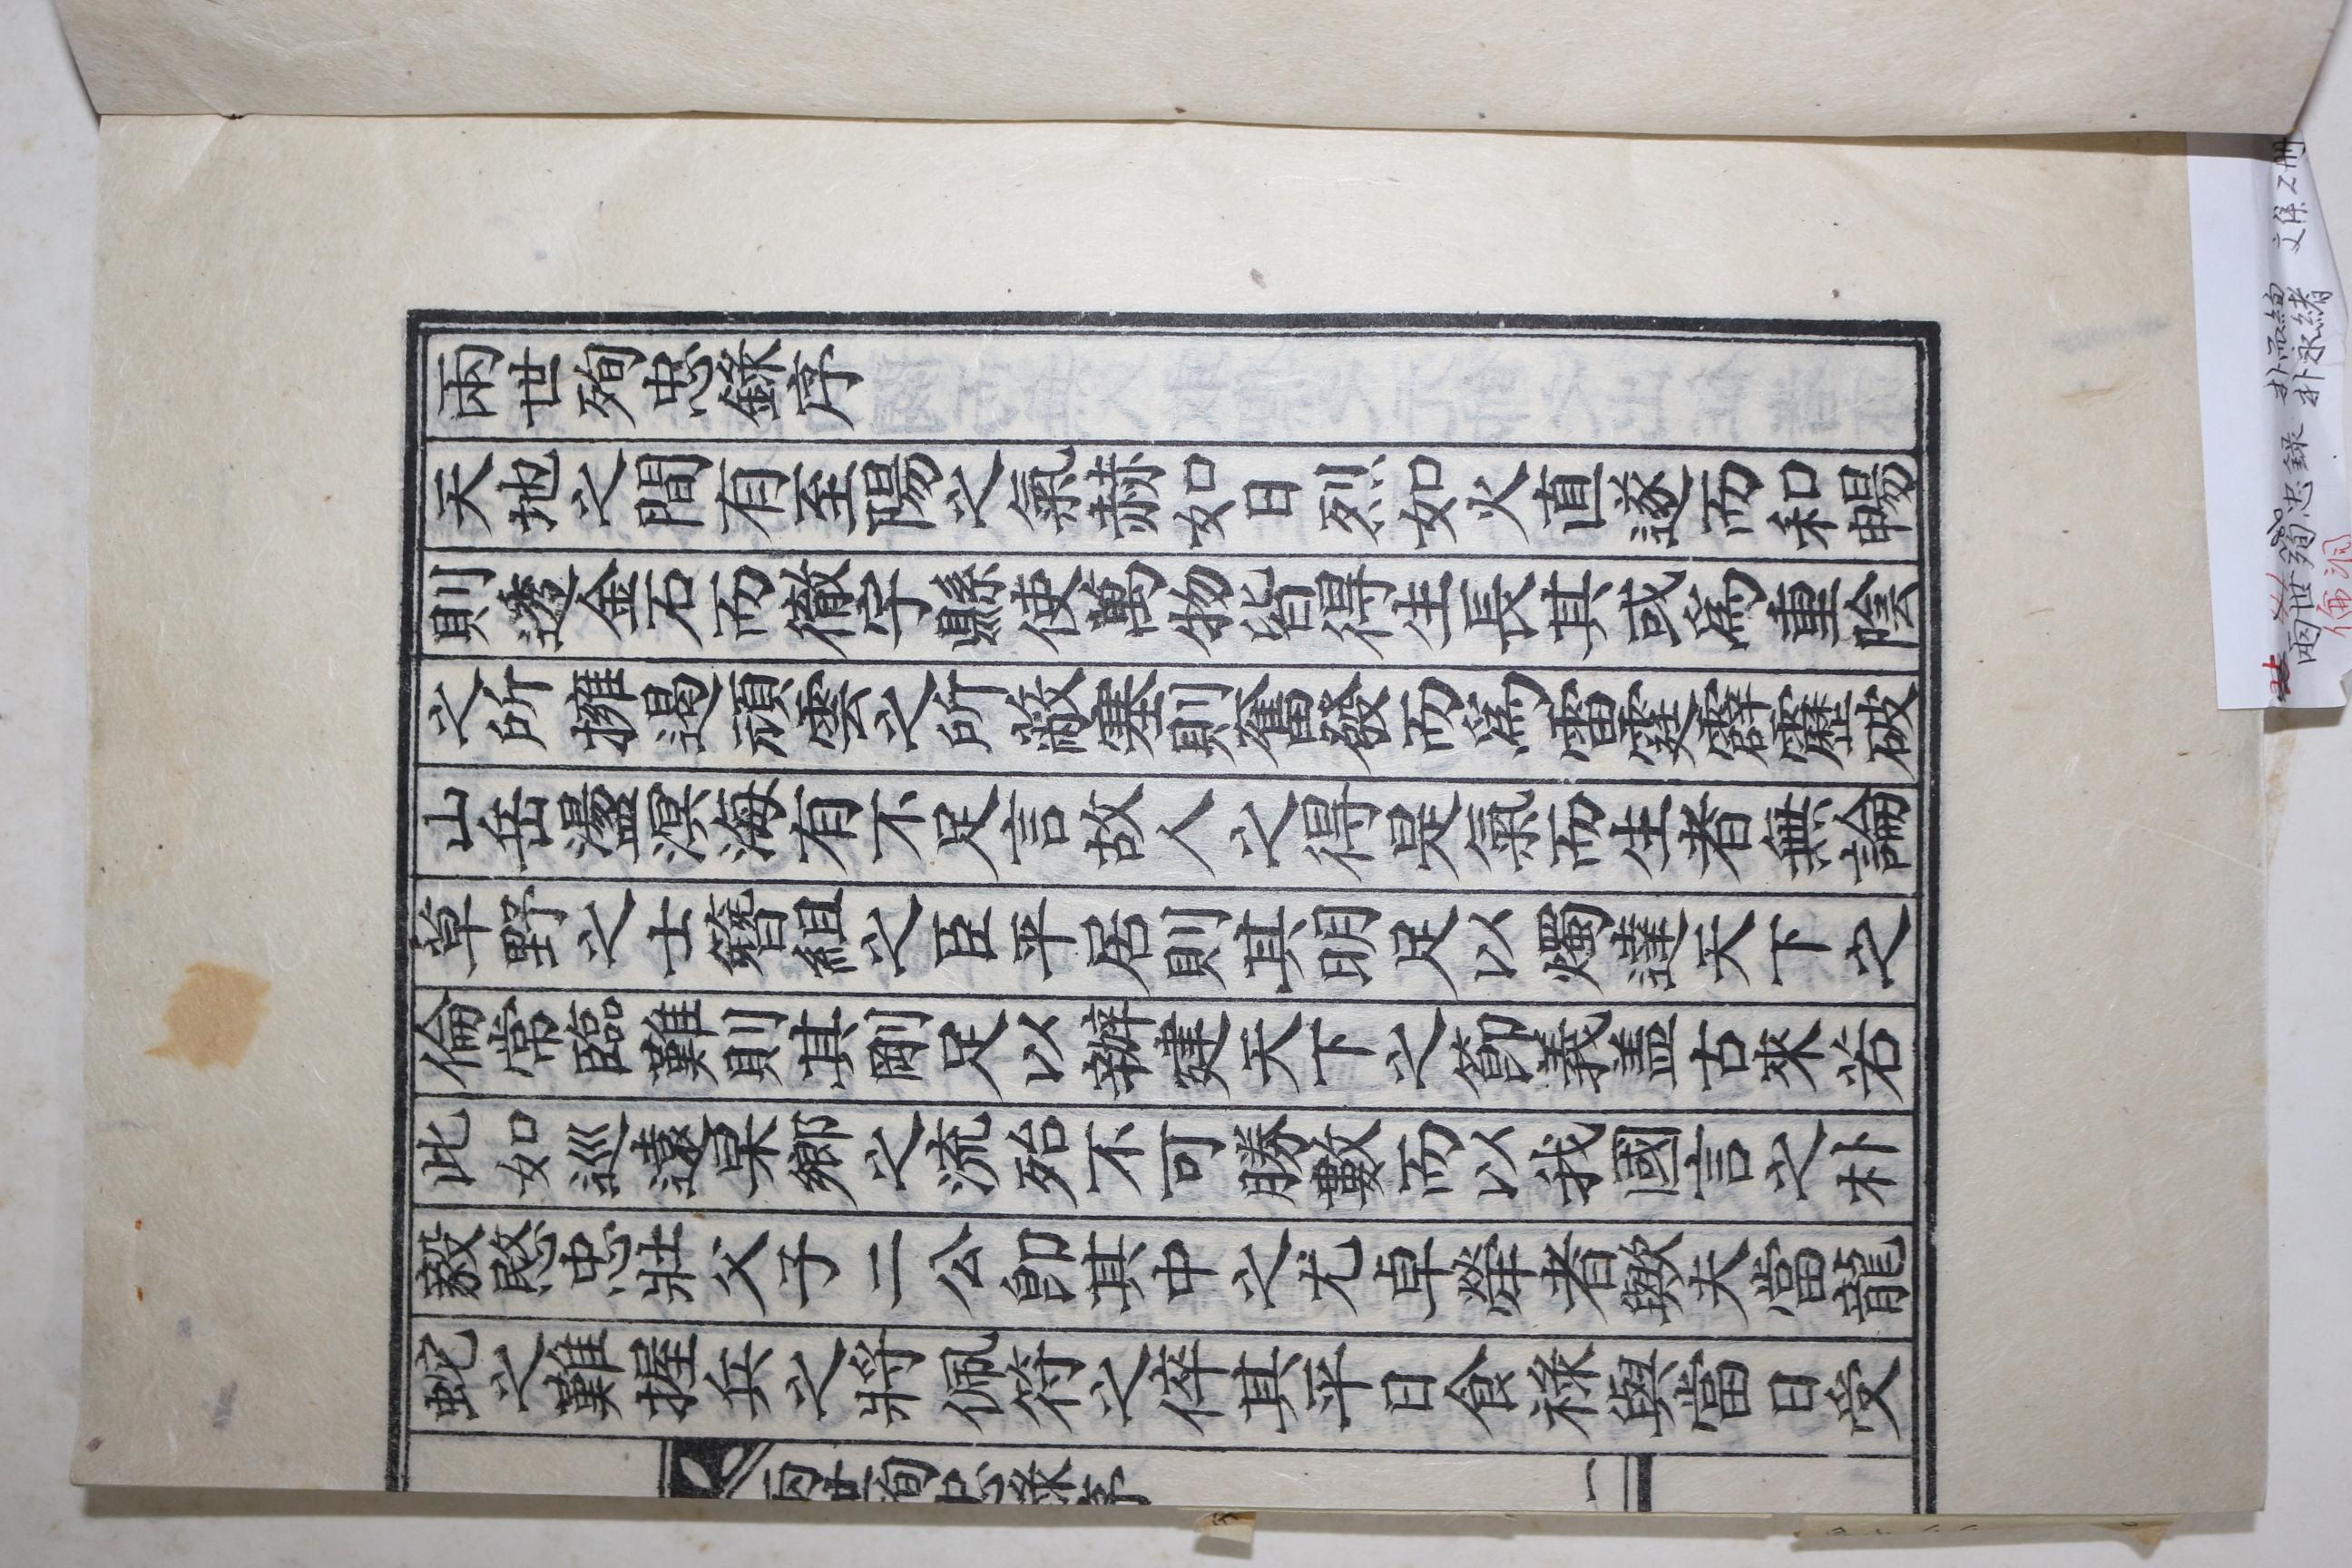 兩世殉忠錄序
天地之間有至陽之氣赫如日烈如火直遂而和暢
則透金石而徹宇縣使萬物皆得生長其或爲重陰
之所擁遏頑雲之所蔽塞則奮發而爲雷霆霹靂破
山岳盪溟海有不足言故人之得是氣而生者無論
草野之士簪組之臣平居則其明足以燭達天下之
倫常臨難則其剛足以辦建天下之節義盖古來若
此如巡遠杲卿之流殆不可勝數而以我國言之朴
毅愍忠壯父子二公卽其中之尤卓犖者歟夫當龍
蛇之難握兵之將佩符之倅其平日食祿與當日受
兩世殉忠錄序 一
兩世殉忠錄 朴而絢 朴永緖 文集2冊